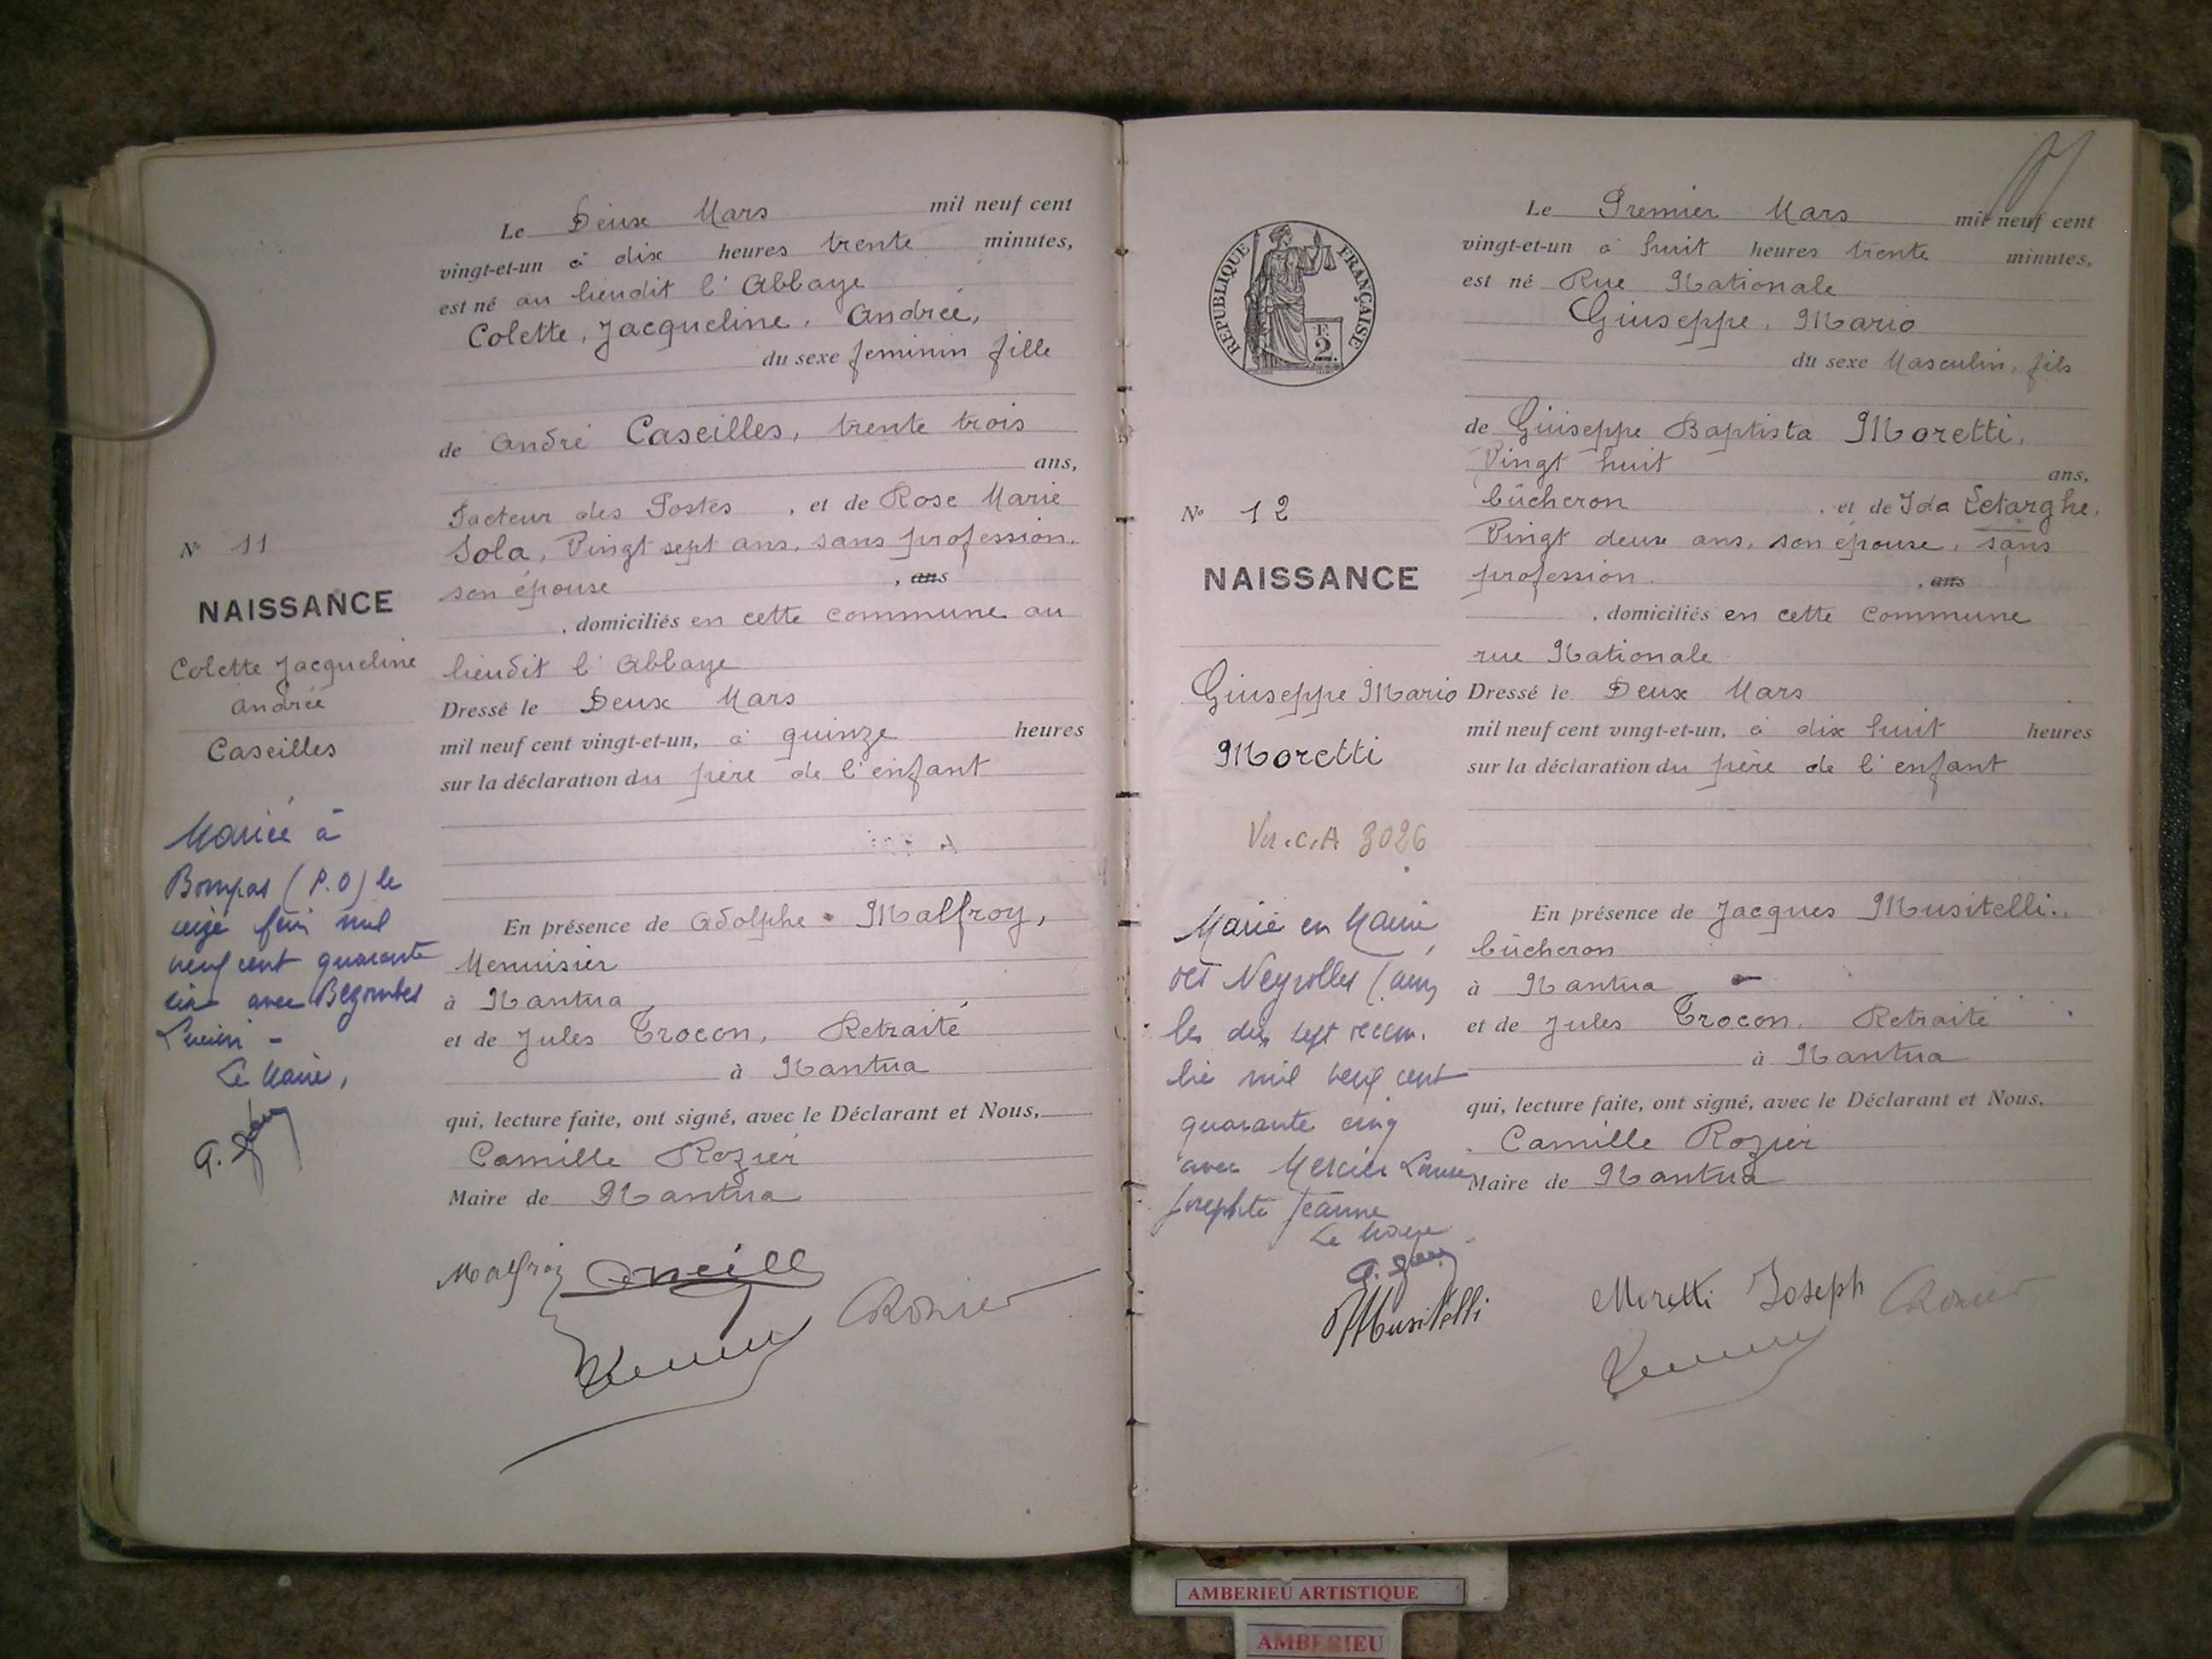 Le Deux Mars mil neuf cent
vingt-et-un à dix heures trente minutes,
est né au lieudit l'Abbaye
Colette, Jacqueline, Andrée,
du sexe feminin fille
de André Caseilles, trente trois
ans,
Facteur des Postes, et de Rose Marie
Sola, Vingt sept ans, sans profession.
son épouse, ans
, domiciliés en cette commune au
lieudit l'Abbaye
Dressé le Deux Mars
mil neuf cent vingt-et-un, à quinze heures
sur la déclaration du père de l'enfant
En présence de Adolphe Malfroy,
Menuisier
à Nantua
et de Jules Trocon, Retraité
à Nantua
qui, lecture faite, ont signé, avec le Déclarant et Nous,
Camille Rozier
Maire de Nantua
Malfroy
CRozier
N° 11
NAISSANCE
Colette Jacqueline
Andrée
Caseilles
Mariée à
Bompas (P.O) le
juin mil
neuf cent quarante
six avec Bezombes
Lucien -
Le Maire,
RÉPUBLIQUE FRANÇAISE
2 F.
N° 12
NAISSANCE
Giuseppe Mario
Moretti
3026
Marié en Mairie
des Neyrolles (Ain)
le dix sept décem-
bre mil neuf cent
quarante cinq
avec Mercier
Jeanne
Le Maire
Le Premier Mars mil neuf cent
vingt-et-un à huit heures trente minutes,
est né Rue Nationale
Giuseppe, Mario
du sexe Masculin, fils
de Giuseppe Baptista Moretti,
Vingt huit ans,
bûcheron, et de Ida Letarghe,
Vingt deux ans, son épouse, sans
profession, ans
, domiciliés en cette commune
rue Nationale
Dressé le Deux Mars
mil neuf cent vingt-et-un, à dix huit heures
sur la déclaration du père de l'enfant
En présence de Jacques Musitelli,
bûcheron
à Nantua
et de Jules Trocon, Retraité
à Nantua
qui, lecture faite, ont signé, avec le Déclarant et Nous,
Camille Rozier
Maire de Nantua
Musitelli
Moretti Joseph
CRozier
AMBERIEU ARTISTIQUE
AMBERIEU